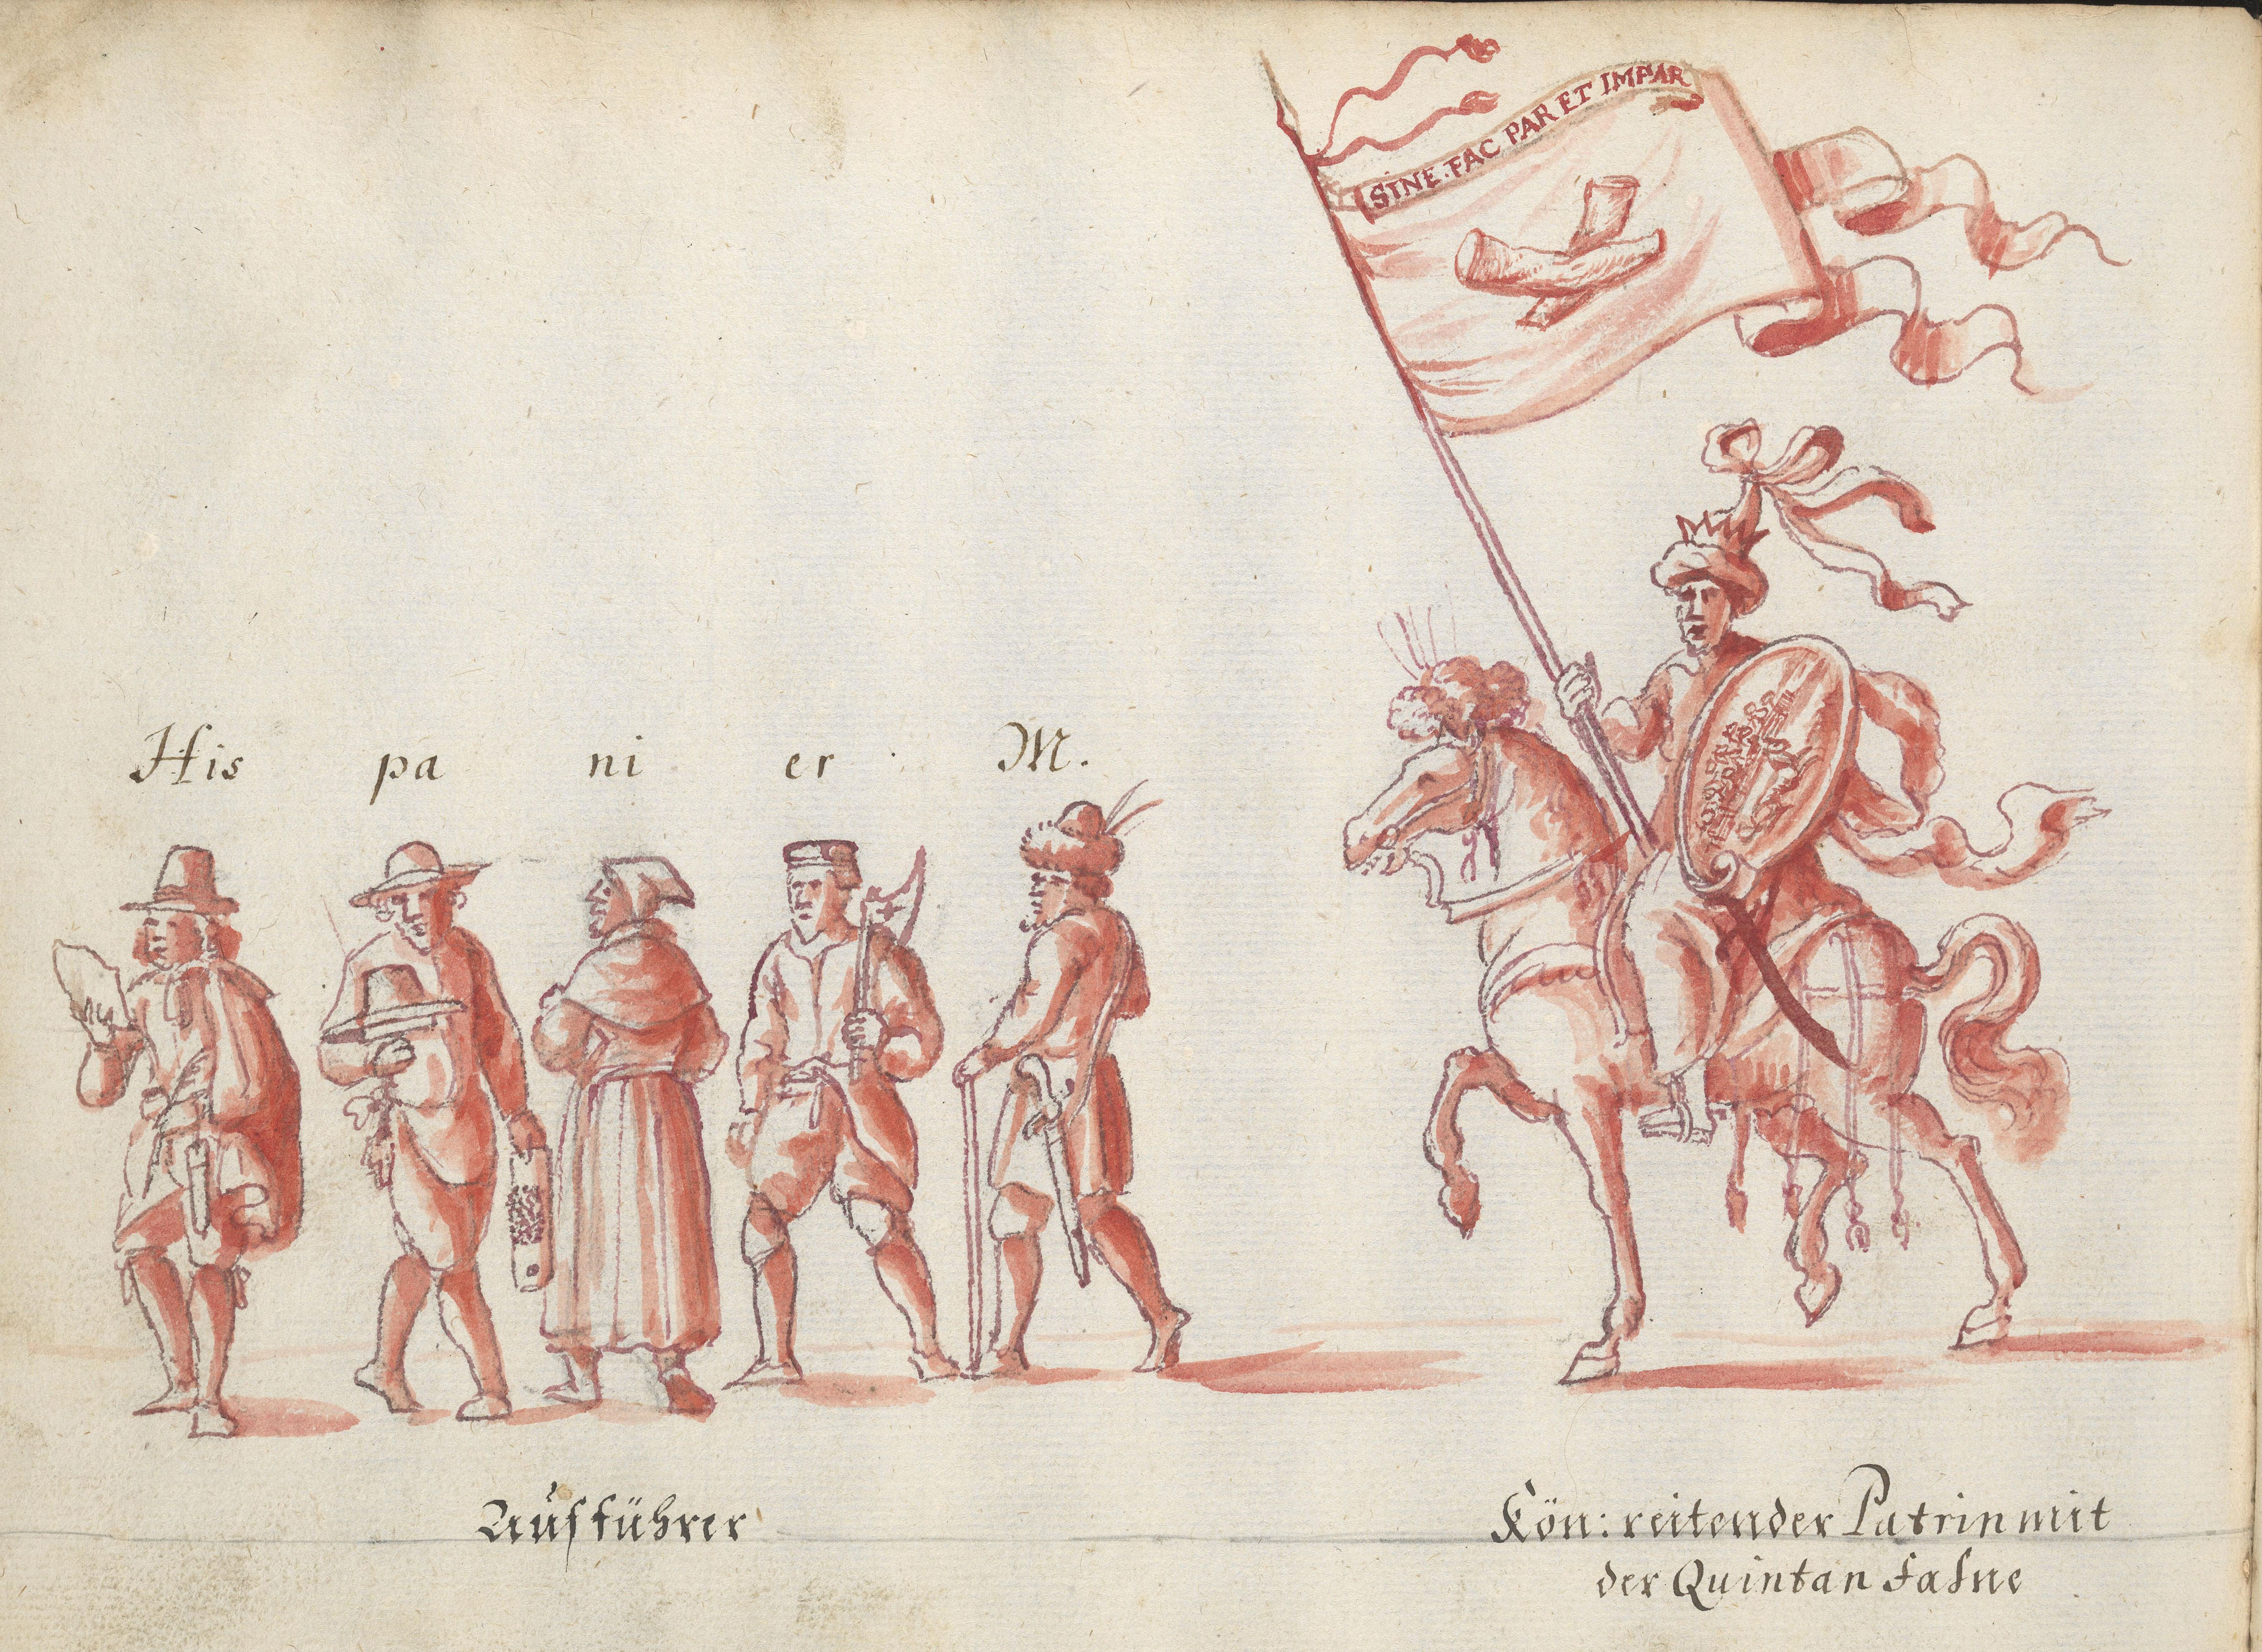 SINE·FAC PAR ET IMPAR
His pa ni er M.
Aúsführer
Kön: reitender Patrin mit
der Quintan Fahne